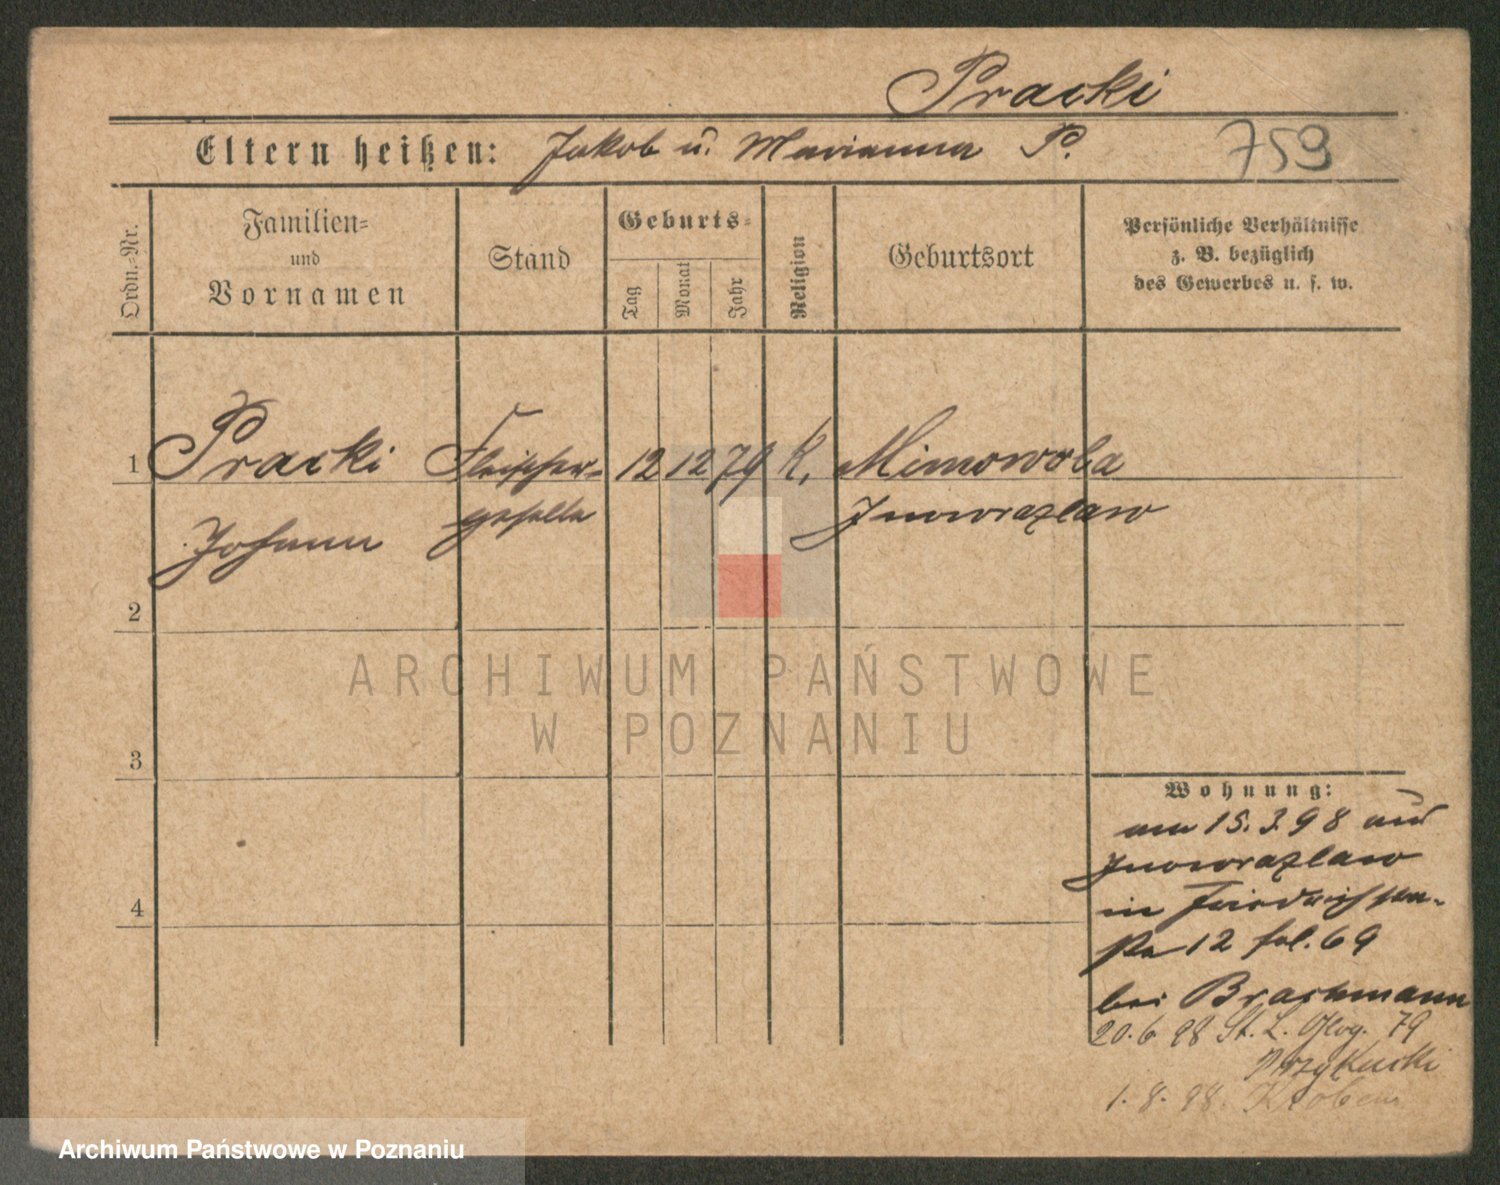 Pracki
Eltern heißen: Jakob u. Marianna P.
759
Ordn.-Nr.
Familien-
und
Vornamen
Stand
Geburts-
Tag
Monat
Jahr
Religion
Geburtsort
Persönliche Verhältnisse
z. B. bezüglich
des Gewerbes u. s. w.
1 Pracki Fleischer- 12 12 79 K. Mimowola
Johann geselle Inowrazlaw
2
3
4
ARCHIWUM PAŃSTWOWE
W POZNANIU
Wohnung:
am 15.3.98 aus
Inowrazlaw
in
12 fol. 69
bei Brachmann
20.6 98 St. L. 79
1. 8. 98.
Archiwum Państwowe w Poznaniu